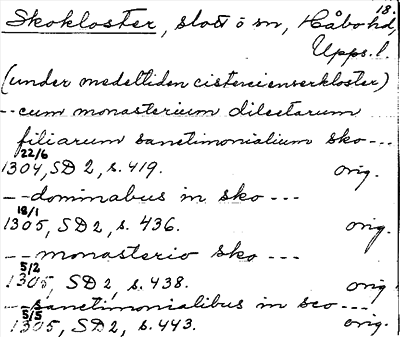 18.
Skokloster, slott o sn, Håbo hd,
Upps. l.
(under medeltiden cistercienserkloster)
--cum monasterium dilectarum
filiarum sanctimonialium sko---
22/6
1304, SD 2, s. 419. orig.
---dominabus in sko---
18/1
1305, SD 2, s. 436. orig.
---monasterio sko---
5/2
1305, SD 2, s. 438. orig.
---sanctimonialibus in sco---
5/5
1305, SD 2, s. 443. orig.